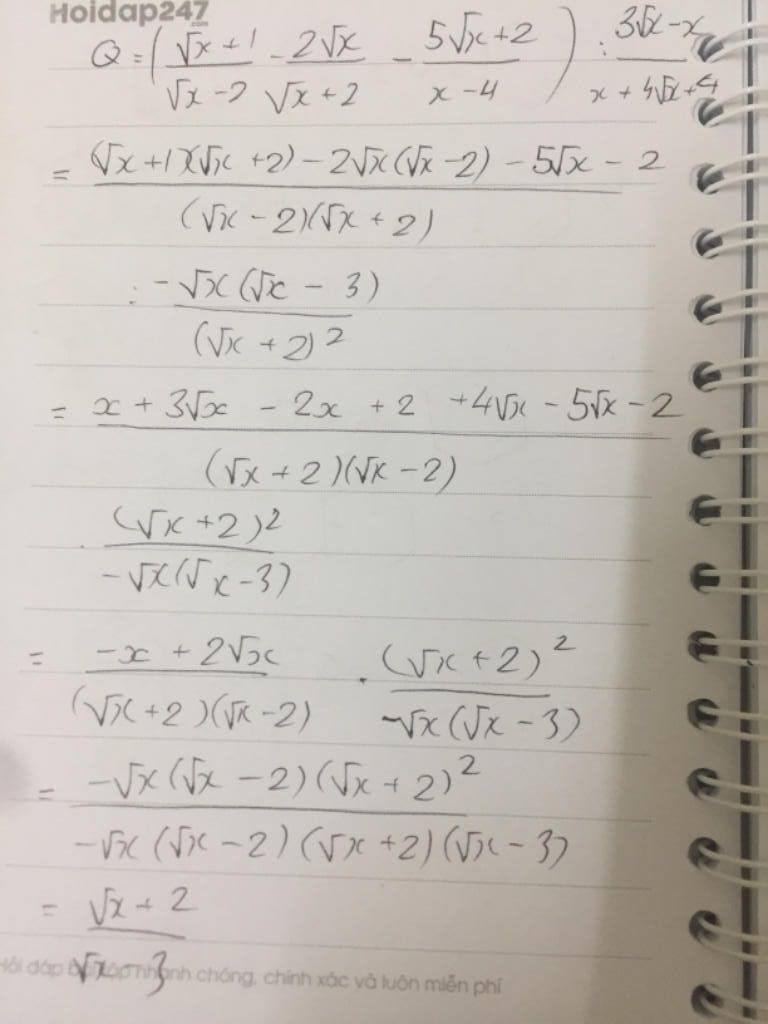 Hoidap247
.com
Q = ( (√x + 1)/(√x - 2) - (2√x)/(√x + 2) - (5√x + 2)/(x - 4) ) : (3√x - x)/(x + 4√x + 4)
= ((√x + 1)(√x + 2) - 2√x(√x - 2) - 5√x - 2)/((√x - 2)(√x + 2))
: (-√x(√x - 3))/((√x + 2)²)
= (x + 3√x - 2x + 2 + 4√x - 5√x - 2)/((√x + 2)(√x - 2))
. ((√x + 2)²)/(-√x(√x - 3))
= (-x + 2√x)/((√x + 2)(√x - 2)) . ((√x + 2)²)/(-√x(√x - 3))
= (-√x(√x - 2)(√x + 2)²)/(-√x(√x - 2)(√x + 2)(√x - 3))
= (√x + 2)/(√x - 3)
Hỏi đáp bài tập nhanh chóng, chính xác và luôn miễn phí